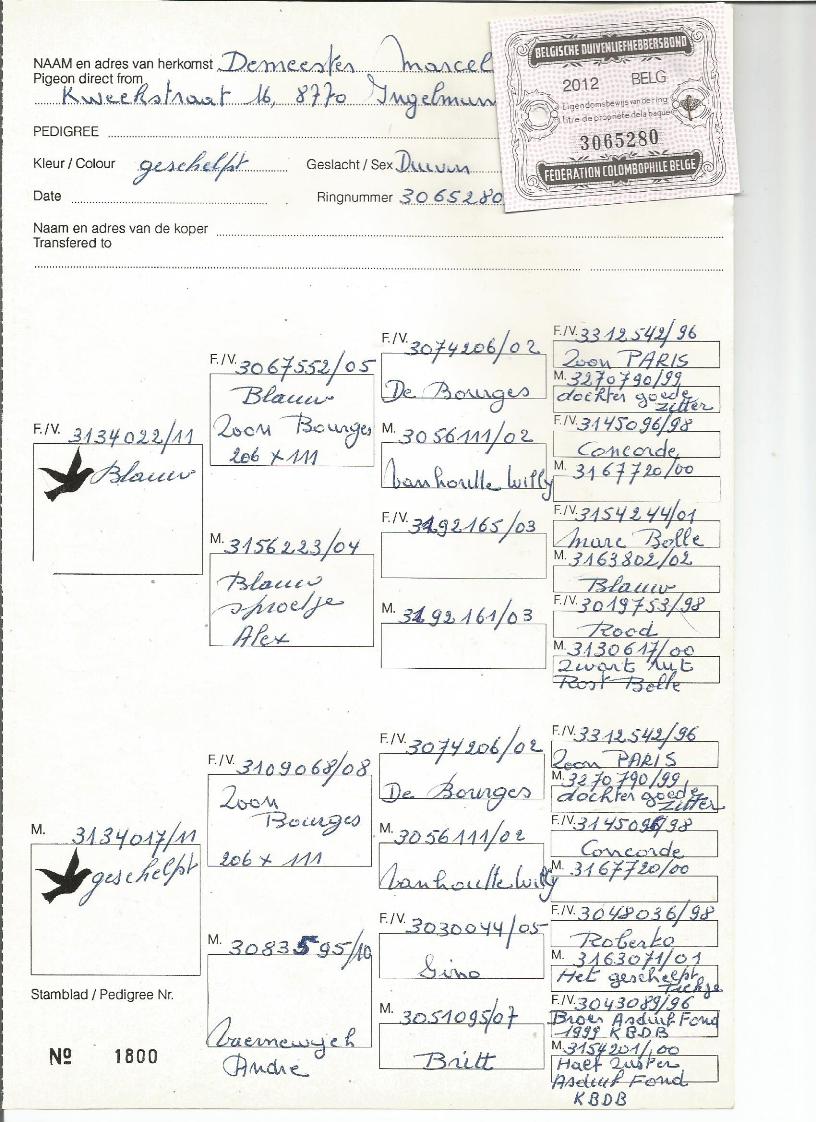 NAAM en adres van herkomst Demeester Marcel
Pigeon direct from
Kweekstraat 16, 8770 Ingelmun
BELGISCHE DUIVENLIEFHEBBERSBOND
2012 BELG
Eigendomsbewijs van de ring
Titre de propriété de la bague
3065280
FEDERATION COLOMBOPHILE BELGE
PEDIGREE
Kleur / Colour geschelpt Geslacht / Sex Duivin
Date Ringnummer 3065280
Naam en adres van de koper
Transfered to
F./V. 3134022/11
Blauw
F./V. 3067552/05
Blauw
Zoon Bourges
206 x 111
M. 3156223/04
Blauw
sproetje
Alex
F./V. 3074206/02
De Bourges
M. 3056111/02
Vanhoutte Willy
F./V. 3192165/03
M. 3192161/03
F./V. 3312542/96
Zoon PARIS
M. 3270790/99
dochter goede
zitter
F./V. 3145096/98
Concorde
M. 3167720/00
F./V. 3154244/01
Marc Bolle
M. 3163802/02
Blauw
F./V. 3019753/98
Rood
M. 3130617/00
Zwart
Rost Bolle
M. 3134017/11
geschelpt
F./V. 3109068/08
Zoon
Bourges
206 x 111
M. 3083595/10
Vaernewyck
Andre
F./V. 3074206/02
De Bourges
M. 3056111/02
Vanhoutte Willy
F./V. 3030044/05
Gino
M. 3051095/07
Britt
F./V. 3312542/96
Zoon PARIS
M. 3270790/99
dochter goede
zitter
F./V. 3145096/98
Concorde
M. 3167720/00
F./V. 3048036/98
Roberto
M. 3163071/01
Het geschelpt
F./V. 3043089/96
Broer Asduif Fond
1999 KBDB
M. 3154201/00
Half Zuster
Asduif Fond
KBDB
Stamblad / Pedigree Nr.
Nº 1800